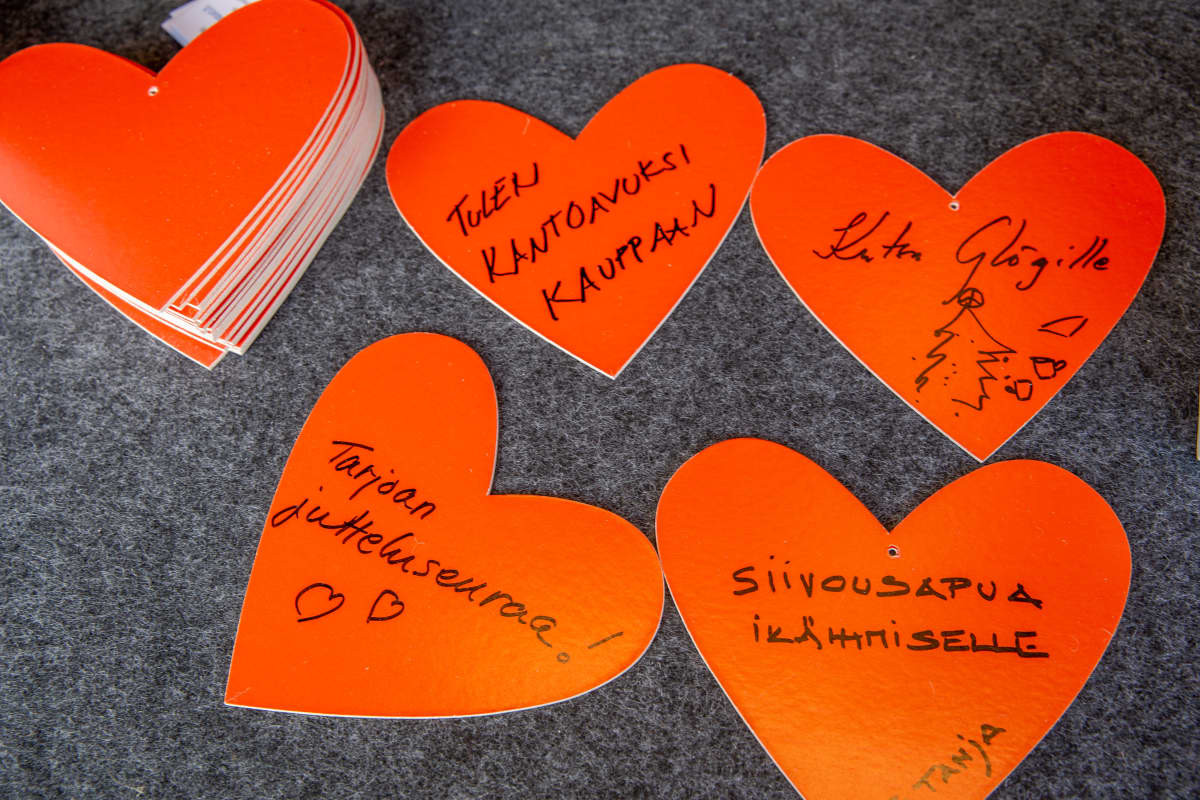 TULEN
KANTOAVUKSI
KAUPPAAN
Kutsu Glögille
Tarjoan
jutteluseuraa!
SIIVOUSAPUA
IKÄIHMISELLE
TANJA